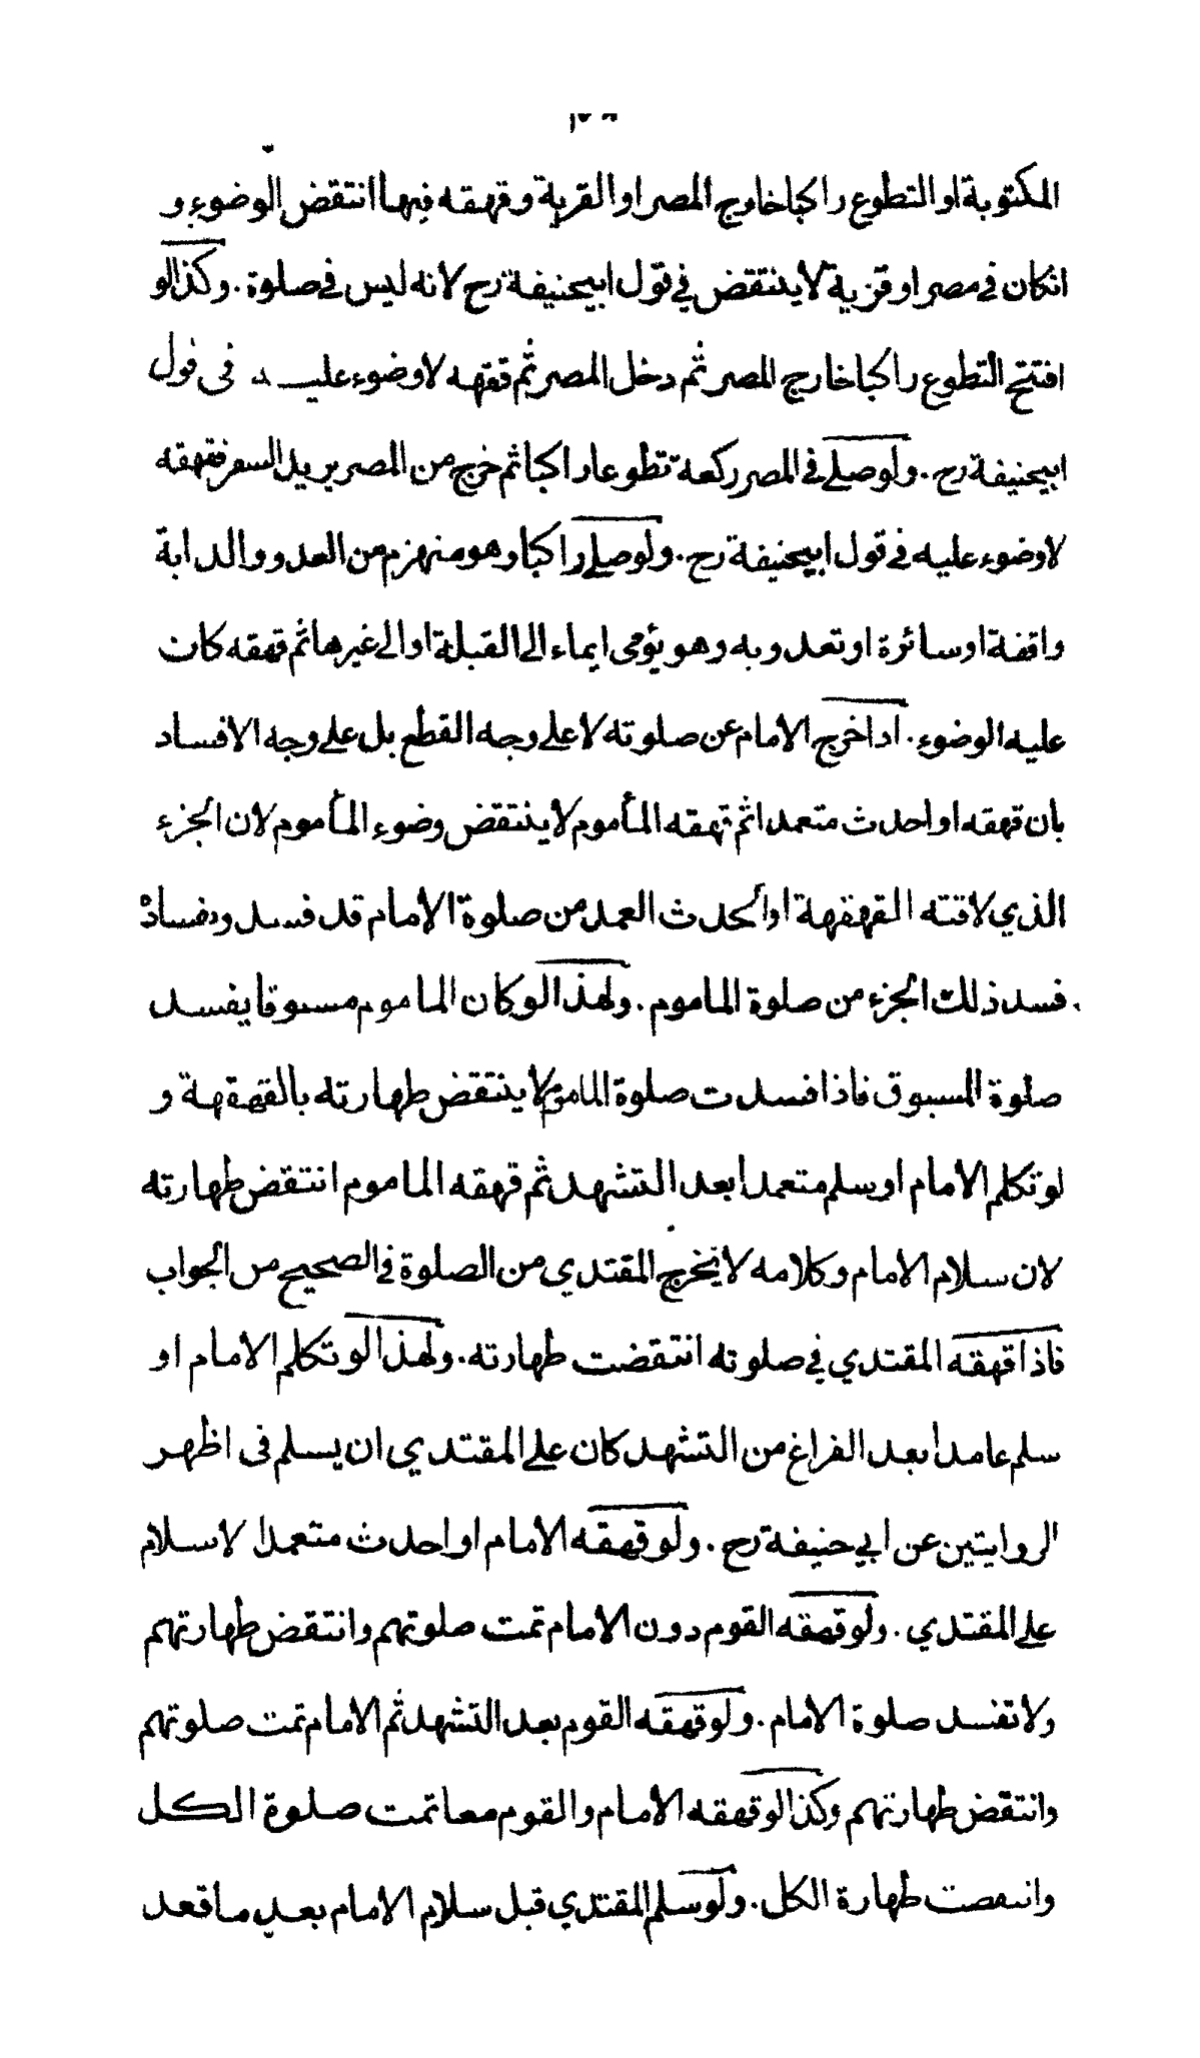 المكتوبة او التطوع راكبا خارج المصر او القرية وقهقه فيها انتقض الوضوء و
انكان فى مصر او قرية لا ينتقض فى قول ابيحنيفة رح لانه ليس فى صلوة . وكذا لو
افتتح التطوع راكبا خارج المصر ثم دخل المصر ثم قهقه لا وضوء عليه فى قول
ابيحنيفة رح . ولو صلى فى المصر ركعة تطوعا راكبا ثم خرج من المصر يريد السفر فقهقه
لا وضوء عليه فى قول ابيحنيفة رح . ولو صلى راكبا وهو منهزم من العدو والدابة
واقفة او سائرة او تعدو به وهو يؤمى ايماء الى القبلة او الى غيرها ثم قهقه كان
عليه الوضوء . اذا خرج الامام عن صلوته لا على وجه القطع بل على وجه الافساد
بان قهقه او احدث متعمدا ثم قهقه المأموم لا ينتقض وضوء المأموم لان الجزء
الذي لاقته القهقهة او الحدث العمد من صلوة الامام قد فسد وبفساده
فسد ذلك الجزء من صلوة الماموم . ولهذا لو كان الماموم مسبوقا يفسد
صلوة المسبوق فاذا فسدت صلوة الماموم لا ينتقض طهارته بالقهقهة و
لو تكلم الامام او سلم متعمدا بعد التشهد ثم قهقه الماموم انتقض طهارته
لان سلام الامام وكلامه لا يخرج المقتدي من الصلوة فى الصحيح من الجواب
فاذا قهقه المقتدي فى صلوته انتقضت طهارته . ولهذا لو تكلم الامام او
سلم عامدا بعد الفراغ من التشهد كان على المقتدي ان يسلم فى اظهر
الروايتين عن ابي حنيفة رح . ولو قهقه الامام او احدث متعمدا لا سلام
على المقتدي . ولو قهقه القوم دون الامام تمت صلوتهم وانتقض طهارتهم
ولا تفسد صلوة الامام . ولو قهقه القوم بعد التشهد ثم الامام تمت صلوتهم
وانتقض طهارتهم وكذا لو قهقه الامام والقوم معا تمت صلوة الكل
وانتقضت طهارة الكل . ولو سلم المقتدي قبل سلام الامام بعد ما قعد